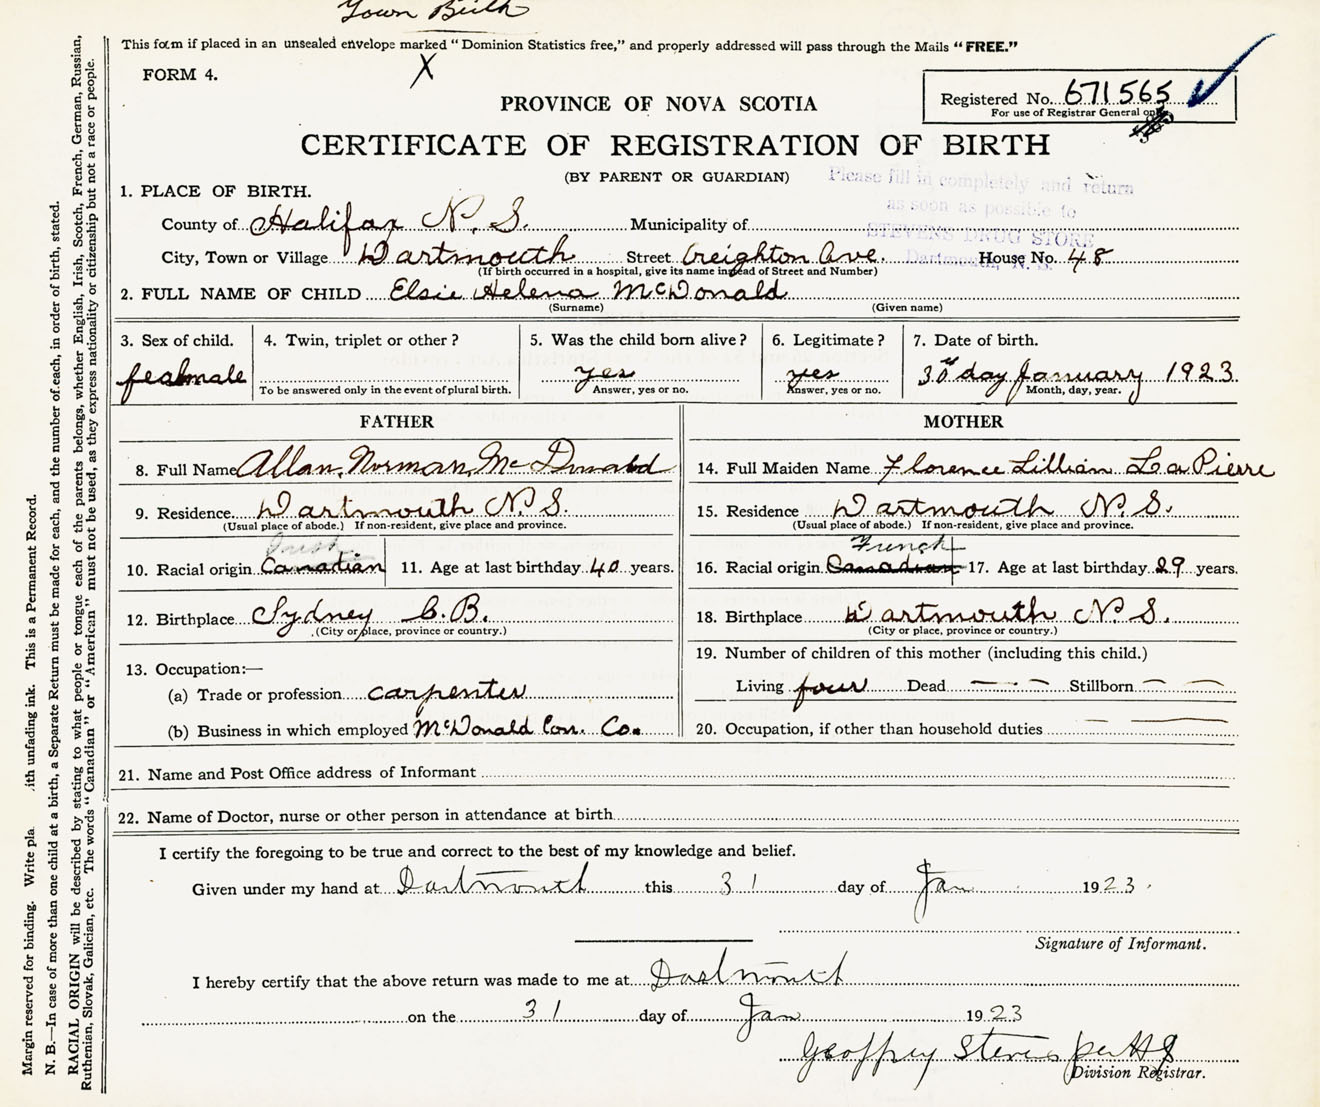 Town Birth
This form if placed in an unsealed envelope marked "Dominion Statistics free," and properly addressed will pass through the Mails "FREE."
FORM 4.
X
Registered No. 671565
For use of Registrar General only
PROVINCE OF NOVA SCOTIA
CERTIFICATE OF REGISTRATION OF BIRTH
(BY PARENT OR GUARDIAN)
Please fill in completely and return
as soon as possible to
STEVENS DRUG STORE
Dartmouth, N. S.
1. PLACE OF BIRTH.
County of Halifax N. S. Municipality of
City, Town or Village Dartmouth Street Creighton Ave. House No. 48
(If birth occurred in a hospital, give its name instead of Street and Number)
2. FULL NAME OF CHILD Elsie Helena McDonald
(Surname) (Given name)
3. Sex of child. 4. Twin, triplet or other? 5. Was the child born alive? 6. Legitimate? 7. Date of birth.
female yes yes 30 day January 1923.
To be answered only in the event of plural birth. Answer, yes or no. Answer, yes or no. Month, day, year.
FATHER MOTHER
8. Full Name Allan Norman McDonald 14. Full Maiden Name Florence Lillian LaPierre
9. Residence Dartmouth N. S. 15. Residence Dartmouth N. S.
(Usual place of abode.) If non-resident, give place and province. (Usual place of abode.) If non-resident, give place and province.
Irish French
10. Racial origin Canadian 11. Age at last birthday 40 years. 16. Racial origin Canadian 17. Age at last birthday 29 years.
12. Birthplace Sydney C. B. 18. Birthplace Dartmouth N. S.
(City or place, province or country.) (City or place, province or country.)
13. Occupation:— 19. Number of children of this mother (including this child.)
(a) Trade or profession carpenter Living four Dead — — Stillborn — —
(b) Business in which employed McDonald Con. Co. 20. Occupation, if other than household duties — —
21. Name and Post Office address of Informant
22. Name of Doctor, nurse or other person in attendance at birth
I certify the foregoing to be true and correct to the best of my knowledge and belief.
Given under my hand at Dartmouth this 31 day of Jan 1923.
Signature of Informant.
I hereby certify that the above return was made to me at Dartmouth
on the 31 day of Jan 1923
Geoffrey Stevens per HS
Division Registrar.
Margin reserved for binding. Write pla ith unfading ink. This is a Permanent Record.
N. B.—In case of more than one child at a birth, a Separate Return must be made for each, and the number of each, in order of birth, stated.
RACIAL ORIGIN will be described by stating to what people or tongue each of the parents belongs, whether English, Irish, Scotch, French, German, Russian,
Ruthenian, Slovak, Galician, etc. The words "Canadian" or "American" must not be used, as they express nationality or citizenship but not a race or people.